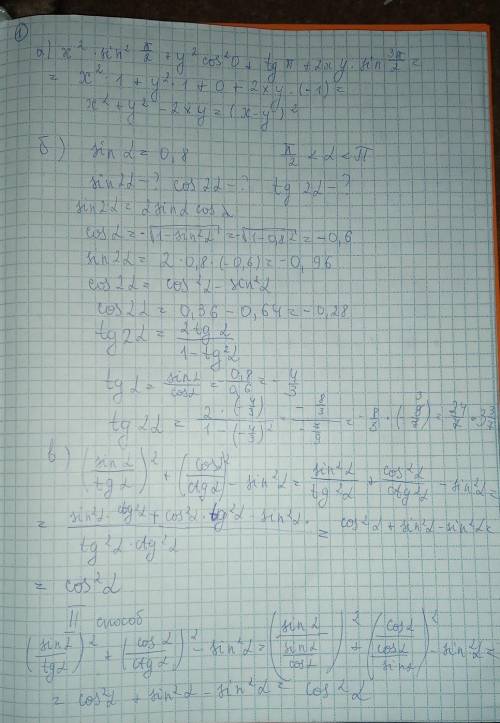 ①
а) x² · sin² π/2 + y² cos² 0 + tg π + 2xy · sin 3π/2 =
= x² · 1 + y² · 1 + 0 + 2xy · (-1) =
x² + y² - 2xy = (x-y)²
б) sin α = 0,8 π/2 < α < π
sin 2α - ? cos 2α - ? tg 2α - ?
sin 2α = 2 sin α cos α
cos α = -√(1-sin²α) = -√(1-0,8²) = -0,6
sin 2α = 2 · 0,8 · (-0,6) = -0,96
cos 2α = cos²α - sin²α
cos 2α = 0,36 - 0,64 = -0,28
tg 2α = 2tg α / (1 - tg²α)
tg α = sin α / cos α = - 0,8/0,6 = - 4/3
tg 2α = 2 · (-4/3) / (1 - (-4/3)²) = (-8/3) / (-7/9) = -8/3 · (-9/7) = 24/7 = 3 3/7
в) (sin α / tg α)² + (cos α / ctg α)² - sin²α = sin²α / tg²α + cos²α / ctg²α - sin²α =
= (sin²α · ctg²α + cos²α · tg²α - sin²α) / (tg²α · ctg²α) = cos²α + sin²α - sin²α =
= cos²α
II способ
(sin α / tg α)² + (cos α / ctg α)² - sin²α = (sin α / (sin α / cos α))² + (cos α / (cos α / sin α))² - sin²α =
= cos²α + sin²α - sin²α = cos²α